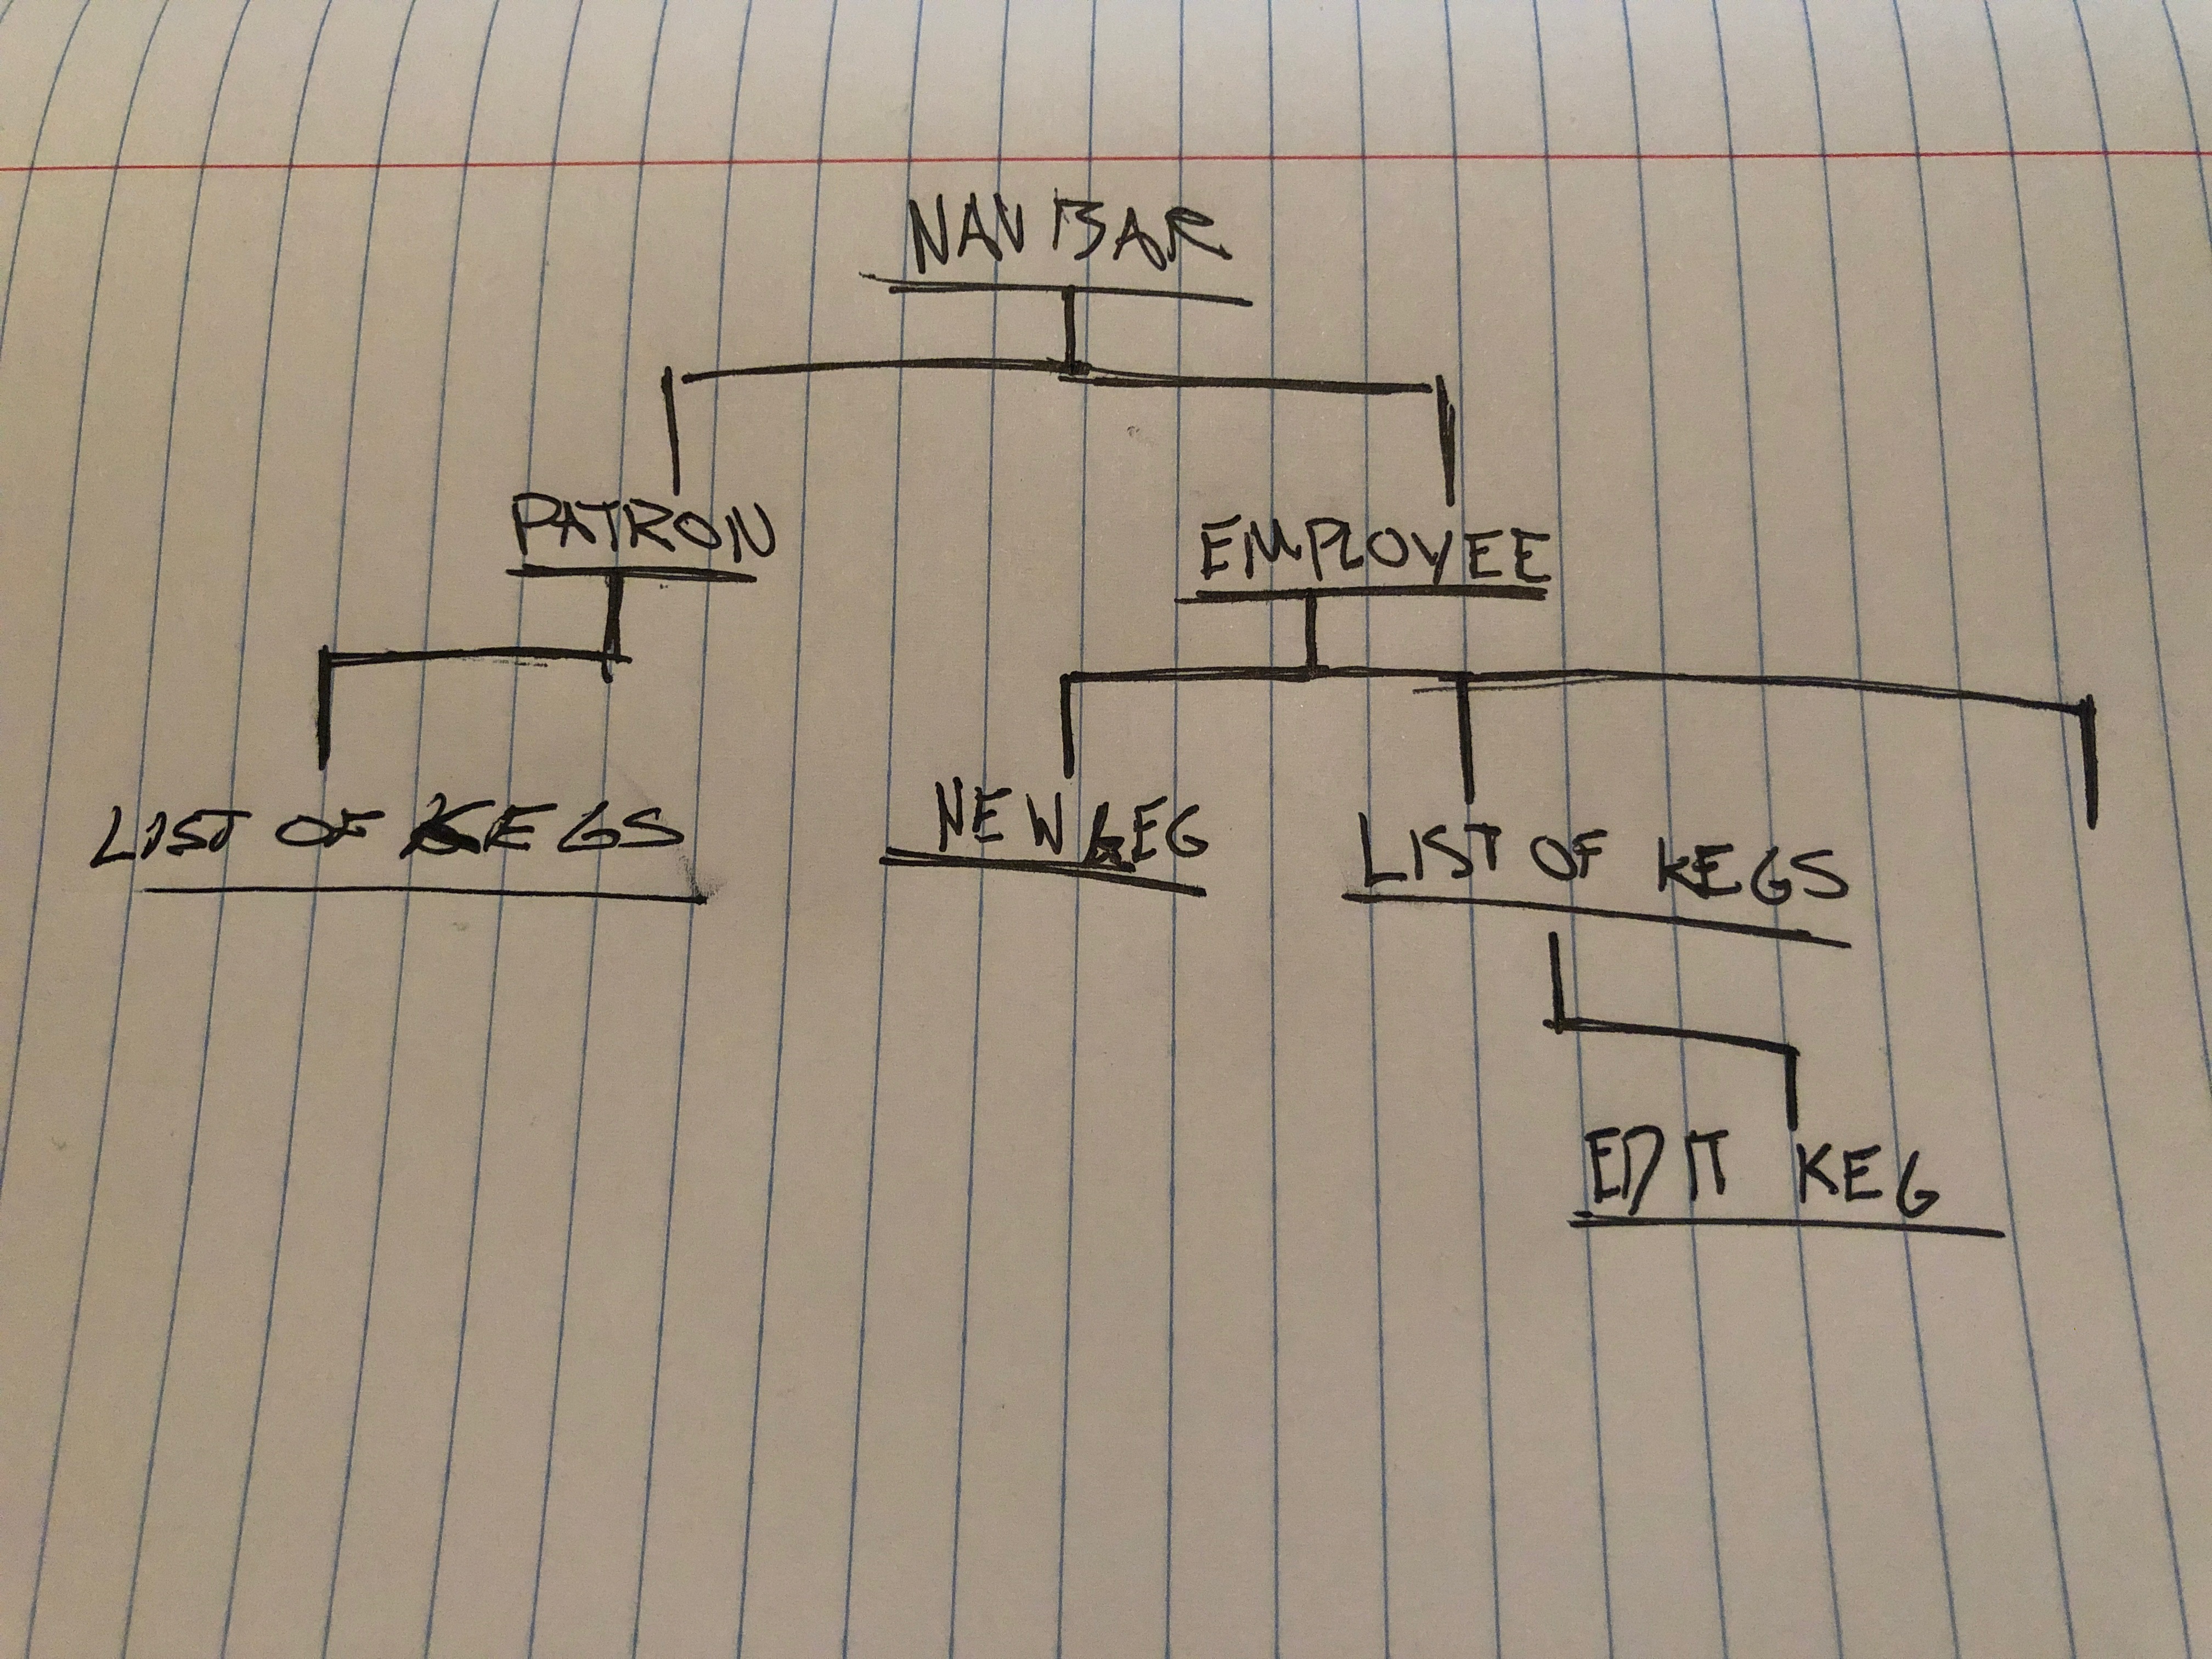 NAV BAR
PATRON
EMPLOYEE
LIST OF KEGS
NEW KEG
LIST OF KEGS
EDIT KEG